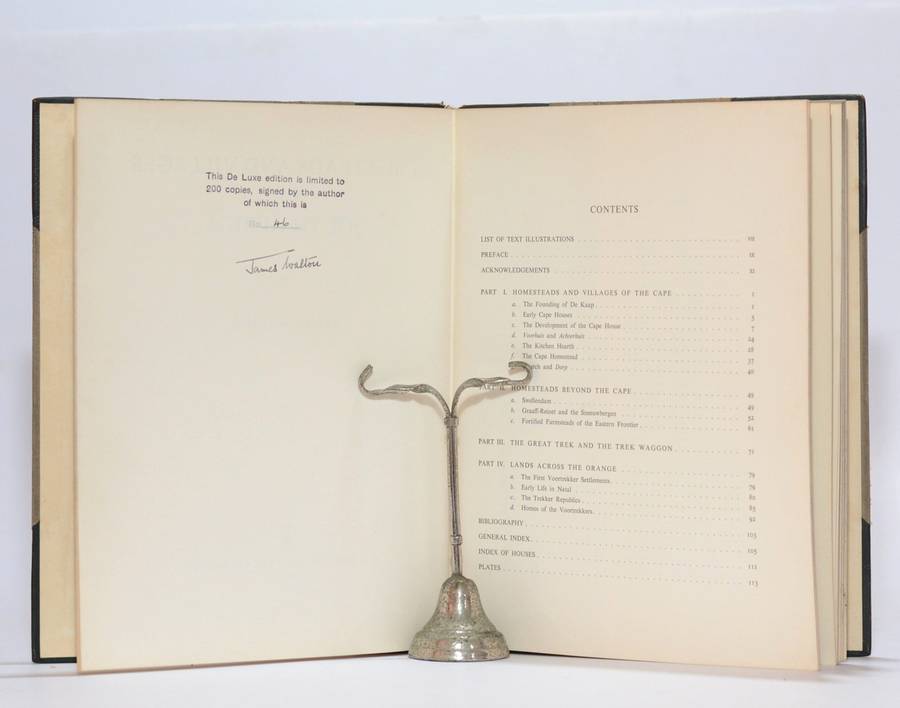 This De Luxe edition is limited to
200 copies, signed by the author
of which this is
No. 46
James Walton
CONTENTS
LIST OF TEXT ILLUSTRATIONS vii
PREFACE ix
ACKNOWLEDGEMENTS xi
PART I. HOMESTEADS AND VILLAGES OF THE CAPE 1
a. The Founding of De Kaap 1
b. Early Cape Houses 5
c. The Development of the Cape House 7
d. Voorhuis and Achterhuis 24
e. The Kitchen Hearth 28
f. The Cape Homestead 37
and Dorp 40
PART II. HOMESTEADS BEYOND THE CAPE 49
a. Swellendam 49
b. Graaff-Reinet and the Sneeuwbergen 52
c. Fortified Farmsteads of the Eastern Frontier 61
PART III. THE GREAT TREK AND THE TREK WAGGON 71
PART IV. LANDS ACROSS THE ORANGE 79
a. The First Voortrekker Settlements 79
b. Early Life in Natal 80
c. The Trekker Republics 85
d. Homes of the Voortrekkers 92
BIBLIOGRAPHY 103
GENERAL INDEX 105
INDEX OF HOUSES 111
PLATES 113